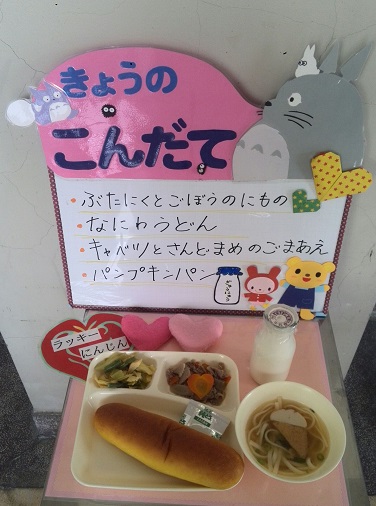 きょうの
こんだて
・ぶたにくとごぼうのにもの
・なにわうどん
・キャベツとさんどまめのごまあえ
・パンプキンパン
ぎゅうにゅう
ラッキー
にんじん